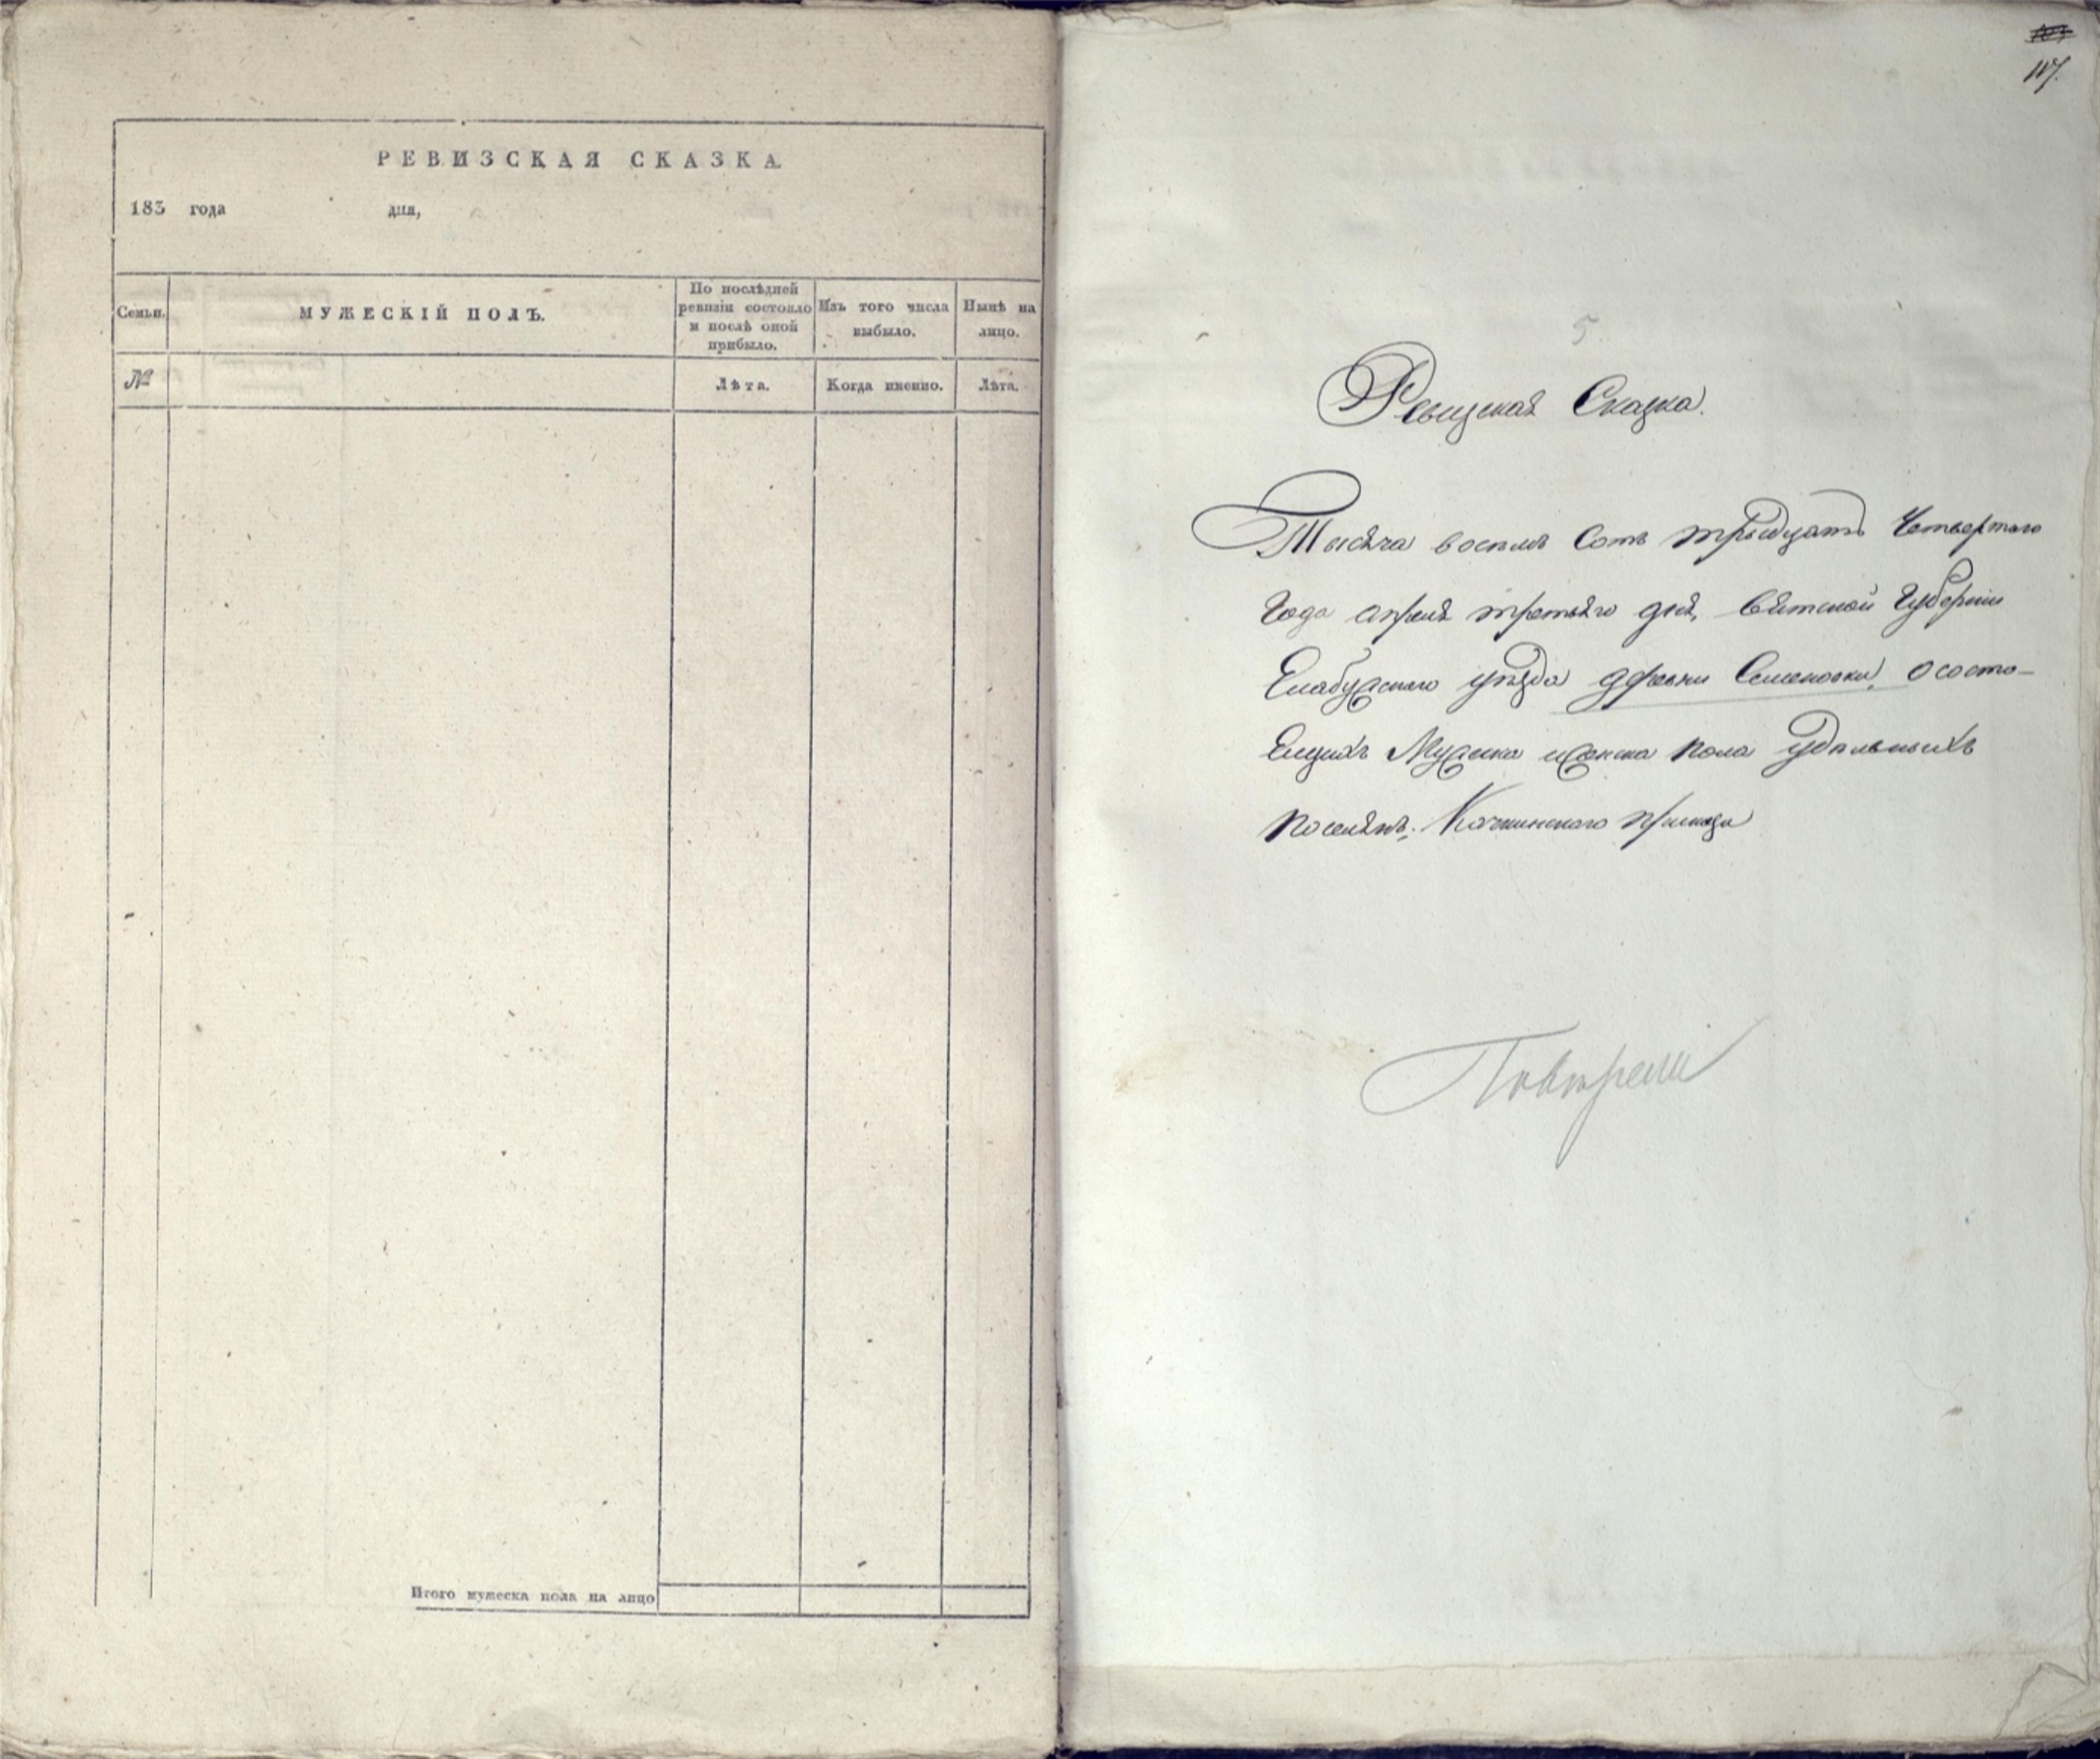 РЕВИЗСКАЯ СКАЗКА
183 года дня,
Семьи.
МУЖЕСКІЙ ПОЛЪ.
По послѣдней
ревизіи состояло
и послѣ оной
прибыло.
Изъ того числа
выбыло.
Нынѣ на
лицо.
№
Лѣта.
Когда именно.
Лѣта.
Итого мужеска пола на лицо
117.
5.
Ревизская Сказка.
Тысяча восемь Сотъ тридцать Четвертаго
Года апреля третьяго дня, Вятской Губерніи
Елабужскаго уѣзда деревни Семеновки, о состо-
ящихъ Мужска и женска пола удѣльныхъ
поселянъ.
Повѣрели